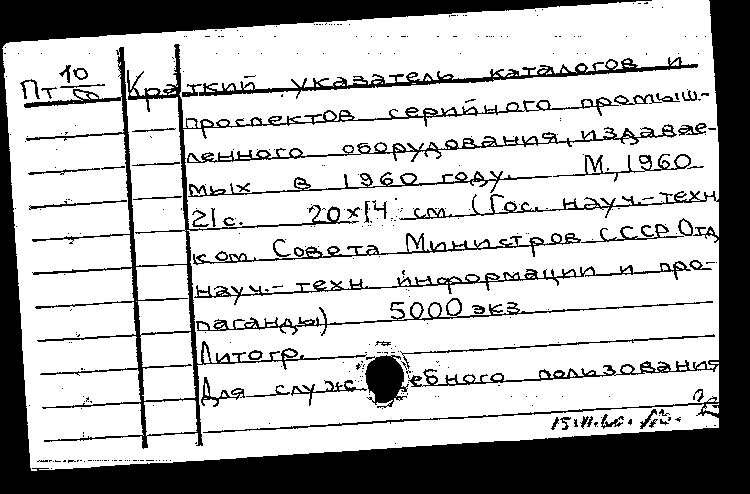 Пт 10 Краткий указатель каталогов и
проспектов серийного промыш-
ленного оборудования, издавае-
мых в 1960 году. М., 1960
21с. 20х14 см. (Гос. науч.-техн
ком. Совета Министров СССР Отд
науч.-техн. информации и про-
паганды) 5000 экз.
Литогр.
Для служебного пользования